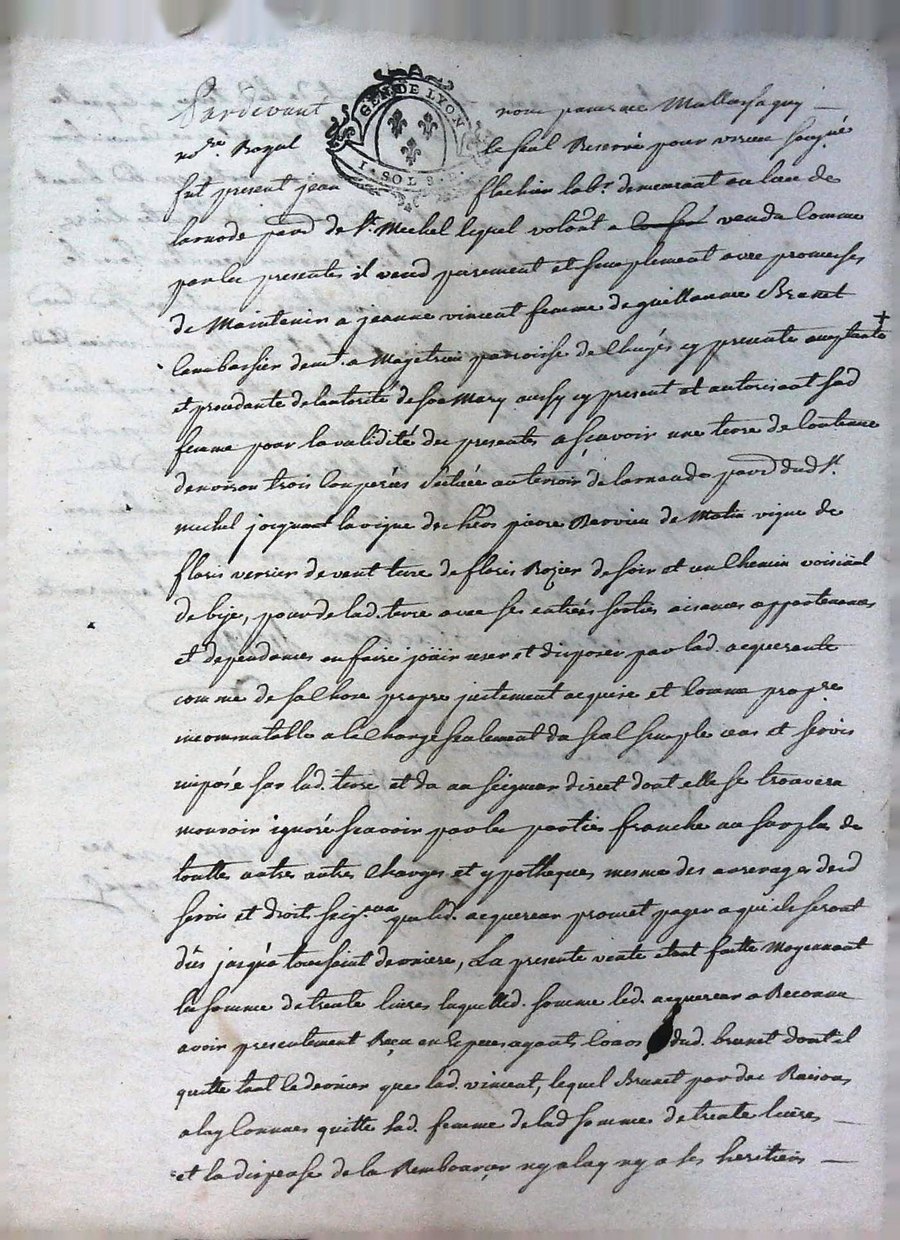 GEN. DE LYON
1. SOL 8. D.
Pardevant nous Mallassaguy
no.re Royal le seul Reservé pour vireu soigné
fut present jean flachier lab.r demeurant au lieu de
larnode par.d de S.t Mechel lequel volont.t a vendu comme
par les presentes il vend purement et simplement avec promesses
de Maintenir a jeanne vincent femme de guillaume Brunet
dem.t a paroisse de Chuyés cy presente acceptante
et procedante de lautorité de son Mary aussy cy present et autorisant sad
femme pour la validité des presentes a sçavoir une terre de contenue
denviron trois couperés scituée au terroir de larnaude par.d dud S.t
michel joignant la vigne des hers pierre de vigne de
floris verrier de vent terre de floris Rozier de soir et un Chemin voisinal
de bize, pour de lad. terre avec ses entrées sorties aisances appartenances
et dependances en faire jöuir user et disposer par lad. acquerante
comme de sa chose propre justement acquise et comme propre
incommutable a la Charge seulement du seul simple cens et servis
imposé sur lad. terre et du au seigneur direct dont elle se trouvera
mouvoir ignoré sçavoir par les parties franche au surplus de
touttes autres autres Charges et ypotheques mesme des arrerages desd
servis et droits seig.aux que led. acquereur promet payer a qui ils seront
dûs jusqua toussaint derniere, La presente vente etant faitte Moyennant
la somme de trente livres laquelled. somme led. acquereur a Reconnu
avoir presentement Reçu en Especes ayants cours dud. brunet dont il
quitte tant le dernier que lad. vincent, lequel Brunet par des Raisons
a luy Connues quitte sad. femme de lad somme de trente livres
et la dispense de la Rembourcer ny a luy ny a ses heritiers